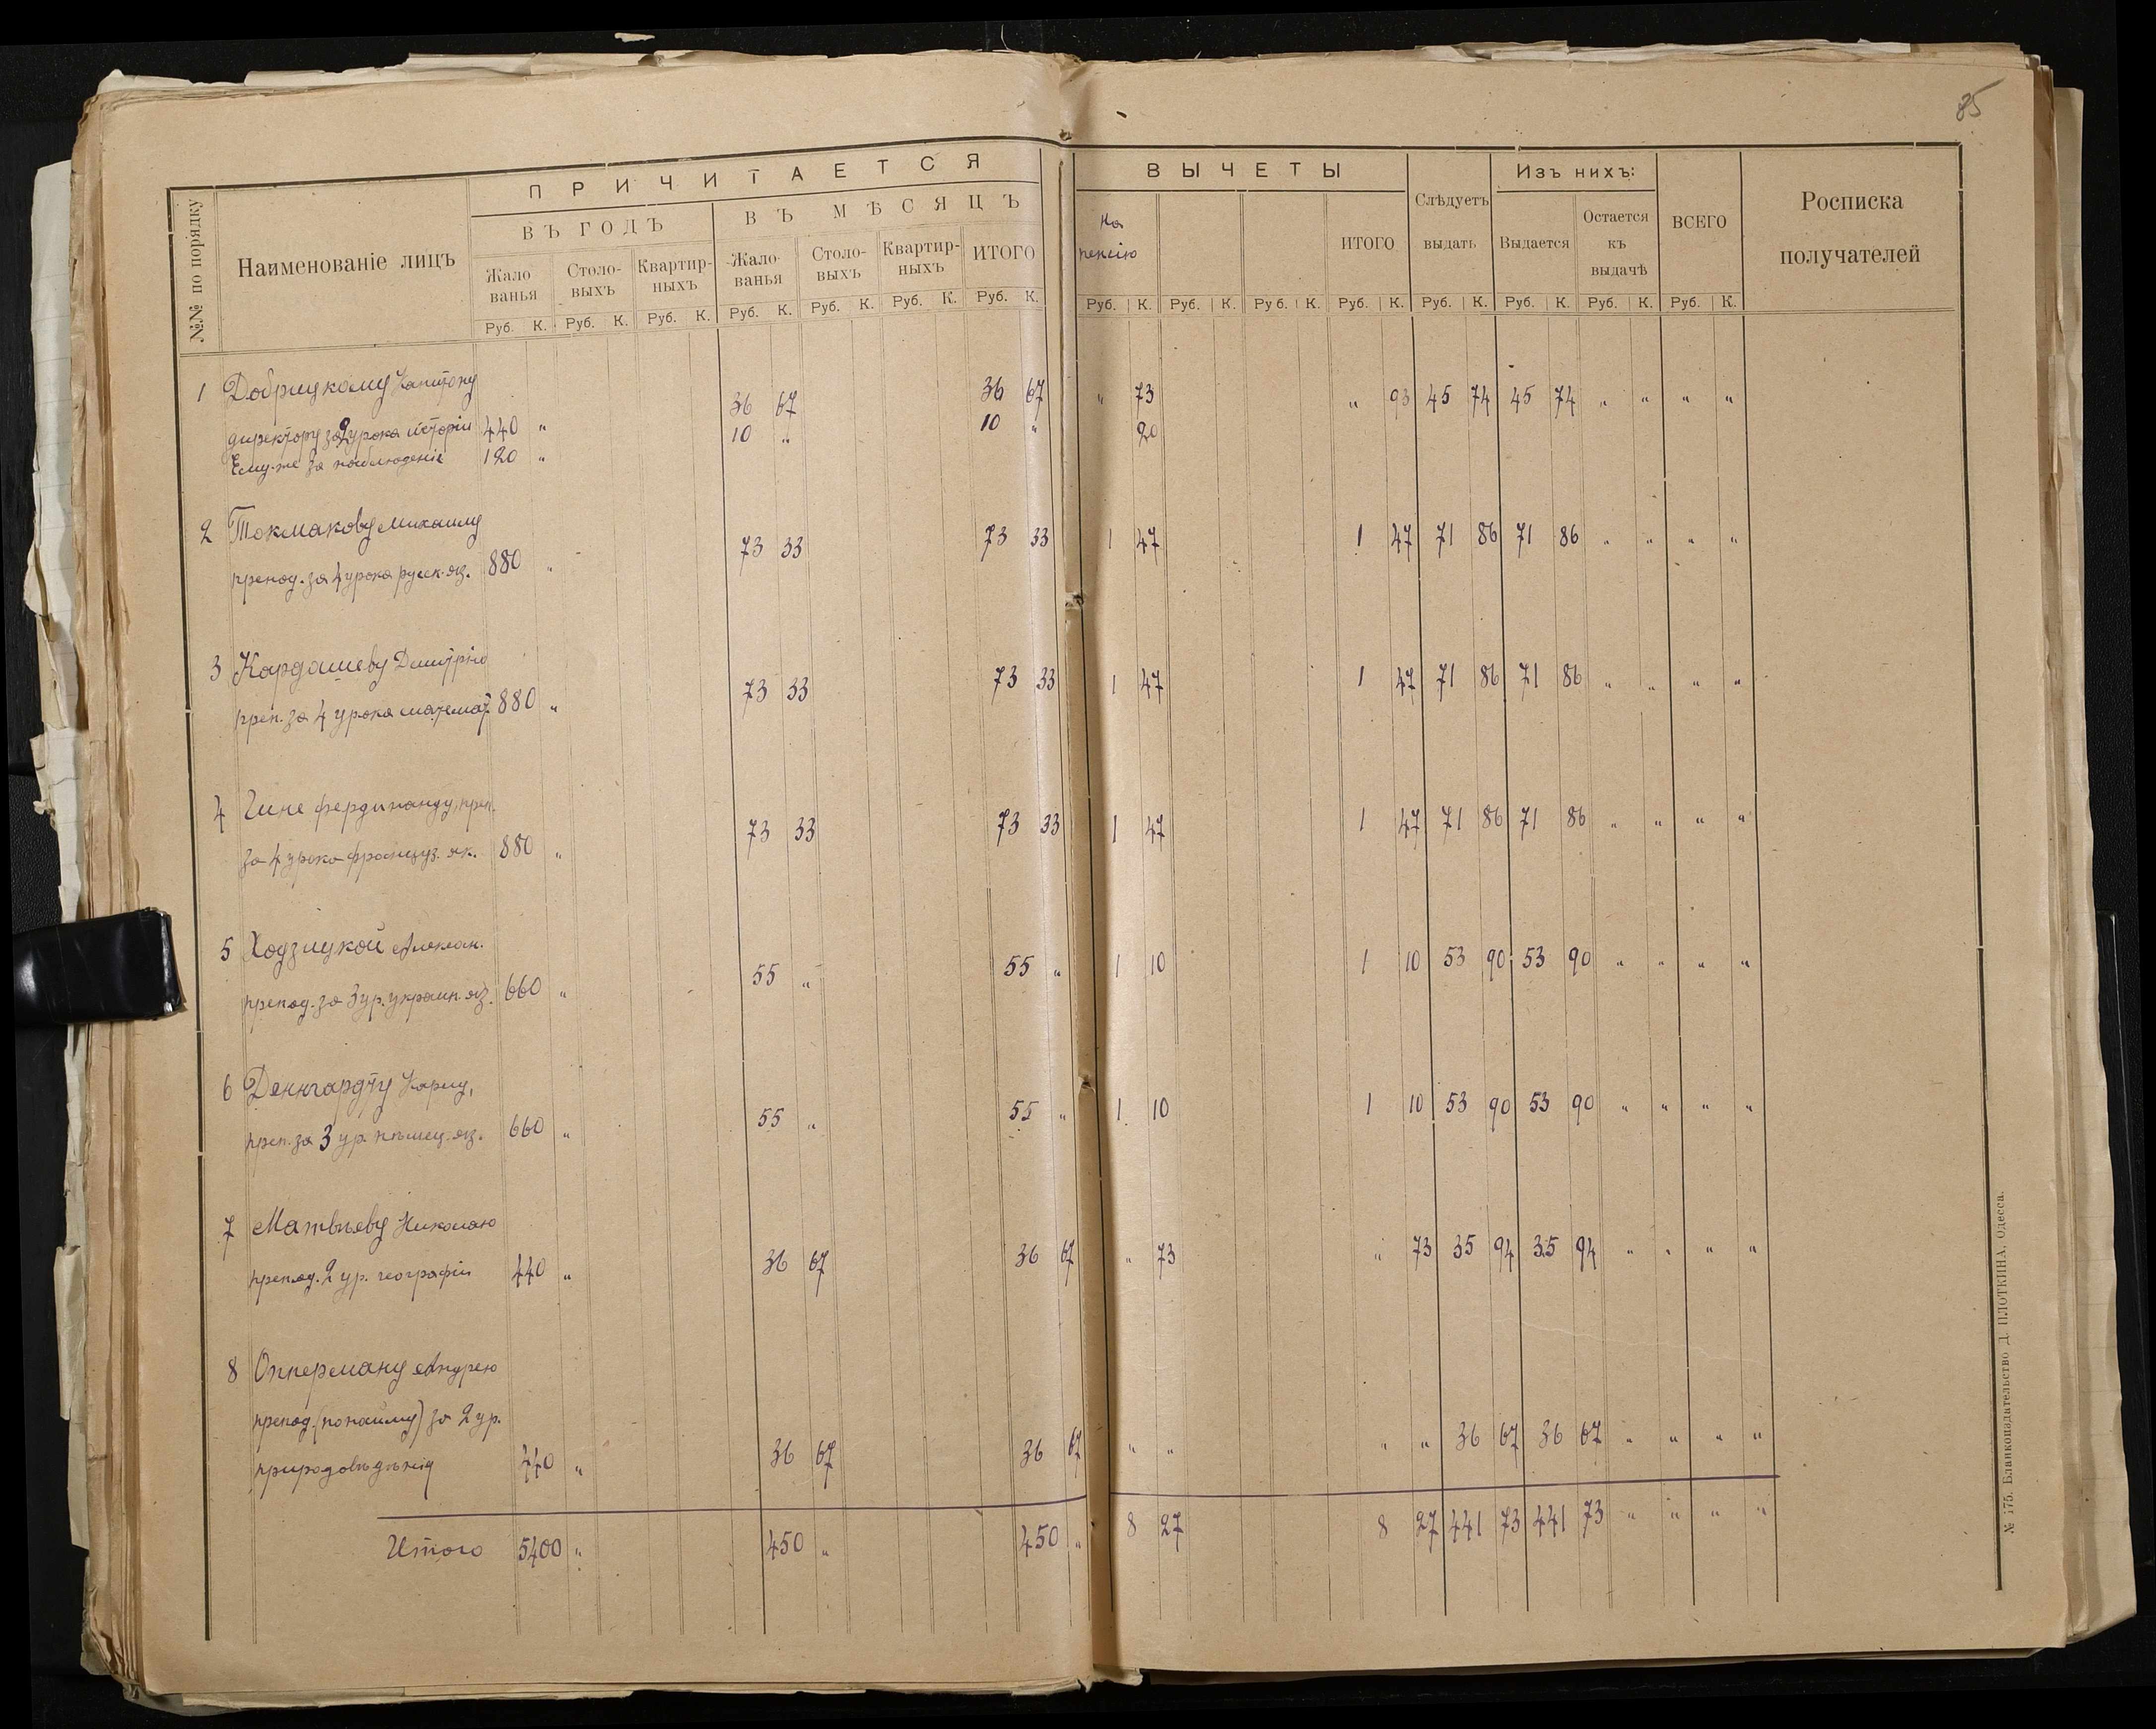 85
ПРИЧИТАЕТСЯ
ВЫЧЕТЫ
Изъ нихъ:
№№ по порядку
Наименованіе лицъ
ВЪ ГОДЪ
ВЪ МѢСЯЦЪ
На пенсію
ИТОГО
Слѣдуетъ выдать
Выдается
Остается къ выдачѣ
ВСЕГО
Росписка получателей
Жалованья
Столовыхъ
Квартирныхъ
Жалованья
Столовыхъ
Квартирныхъ
ИТОГО
Руб. К. Руб. К. Руб. К. Руб. К. Руб. К. Руб. К. Руб. К. Руб. К. Руб. К. Руб. К. Руб. К. Руб. К. Руб. К. Руб. К. Руб. К.
1 Добрицкому Капитону
директору за 2 урока исторіи 440 " 36 67 36 67 " 73 " 93 45 74 45 74 " " " "
Ему-же за наблюденіе 120 " 10 " 10 " 20
2 Токмакову Михаилу
препод. за 4 урока русск. яз. 880 " 73 33 73 33 1 47 1 47 71 86 71 86 " " " "
3 Кардашеву Дмитрію
преп. за 4 урока математ. 880 " 73 33 73 33 1 47 1 47 71 86 71 86 " " " "
4 Гине Фердинанду, преп.
за 4 урока француз. яз. 880 " 73 33 73 33 1 47 1 47 71 86 71 86 " " " "
5 Ходзицкой Алексан.
препод. за 3 ур. украин. яз. 660 " 55 " 55 " 1 10 1 10 53 90 53 90 " " " "
6 Денгардту Карлу,
преп. за 3 ур. нѣмец. яз. 660 " 55 " 55 " 1 10 1 10 53 90 53 90 " " " "
7 Матвѣеву Николаю
препод. 2 ур. географіи 440 " 36 67 36 67 " 73 " 73 35 94 35 94 " " " "
8 Опперману Андрею
препод. (по найму) за 2 ур.
природовѣдѣнія 440 " 36 67 36 67 " " " " 36 67 36 67 " " " "
Итого 5400 " 450 " 450 " 8 27 8 27 441 73 441 73 " " " "
№ 175. Бланкоиздательство Д. ПЛОТКИНА, Одесса.